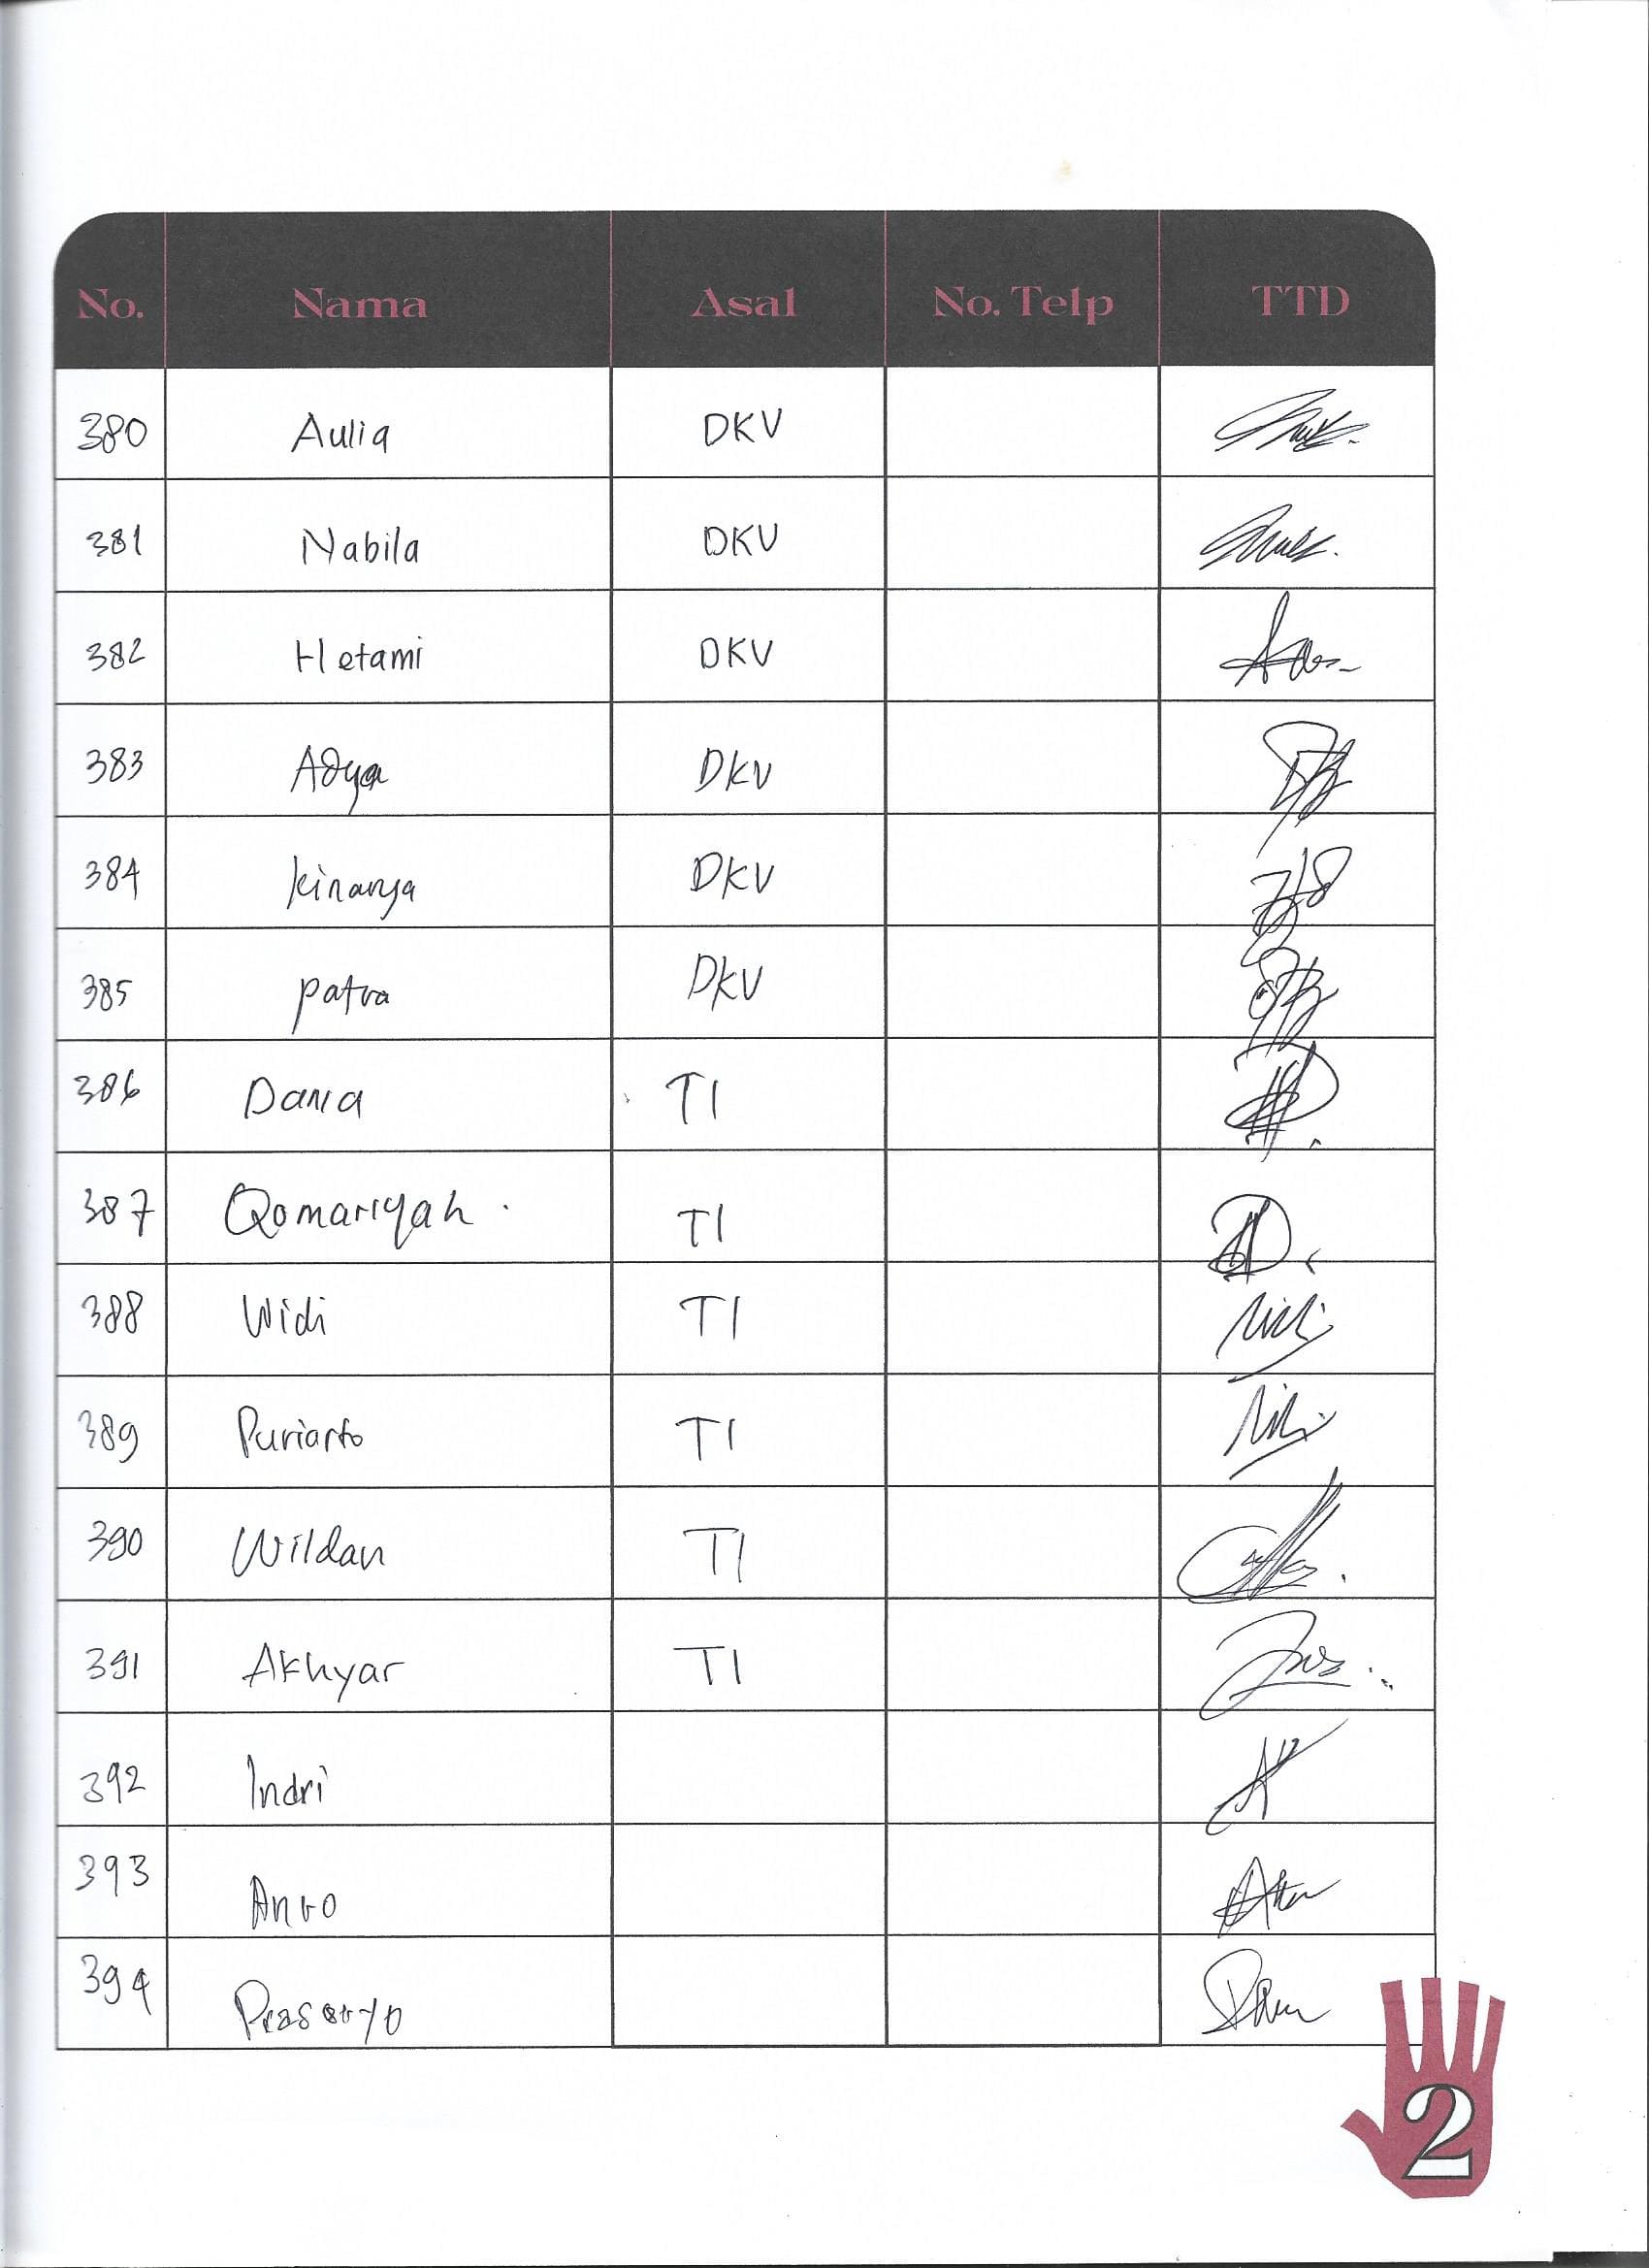 No. Nama Asal No. Telp TTD
380 Aulia DKV
381 Nabila DKV
382 Hetami DKV
383 Adya DKV
384 kinanya DKV
385 patra DKV
386 Dania TI
387 Qomariyah TI
388 Widi TI
389 Purianto TI
390 Wildan TI
391 Akhyar TI
392 Indri
393
394
2